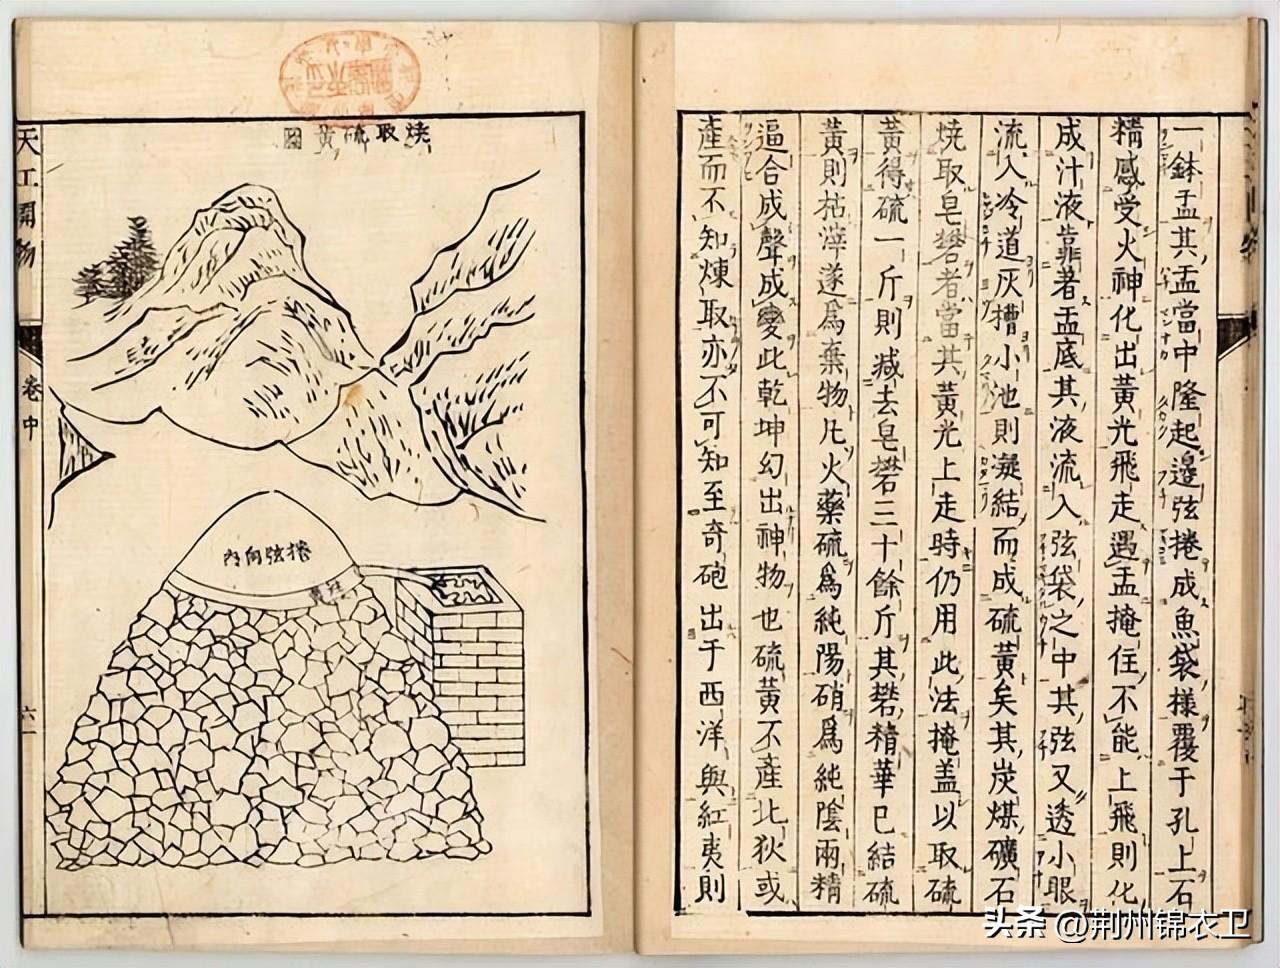 一鉢盂其盂當中隆起邊弦捲成魚袋様覆于孔上石
精感受火神化出黃光飛走遇盂掩住不能上飛則化
成汁液靠着盂底其液流入弦袋之中其弦又透小眼
流入冷道灰槽小池則凝結而成硫黃矣其炭煤礦石
燒取皂礬者當其黃光上走時仍用此法掩盖以取硫
黃得硫一斤則減去皂礬三十餘斤其礬精華已結硫
黃則枯滓遂爲棄物凡火藥硫爲純陽硝爲純陰兩精
逼合成聲成變此乾坤幻出神物也硫黃不產北狄或
產而不知煉取亦不可知至奇砲出于西洋與紅夷則
燒取硫黃圖
捲弦向內
天工開物
卷中
头条 @荆州锦衣卫